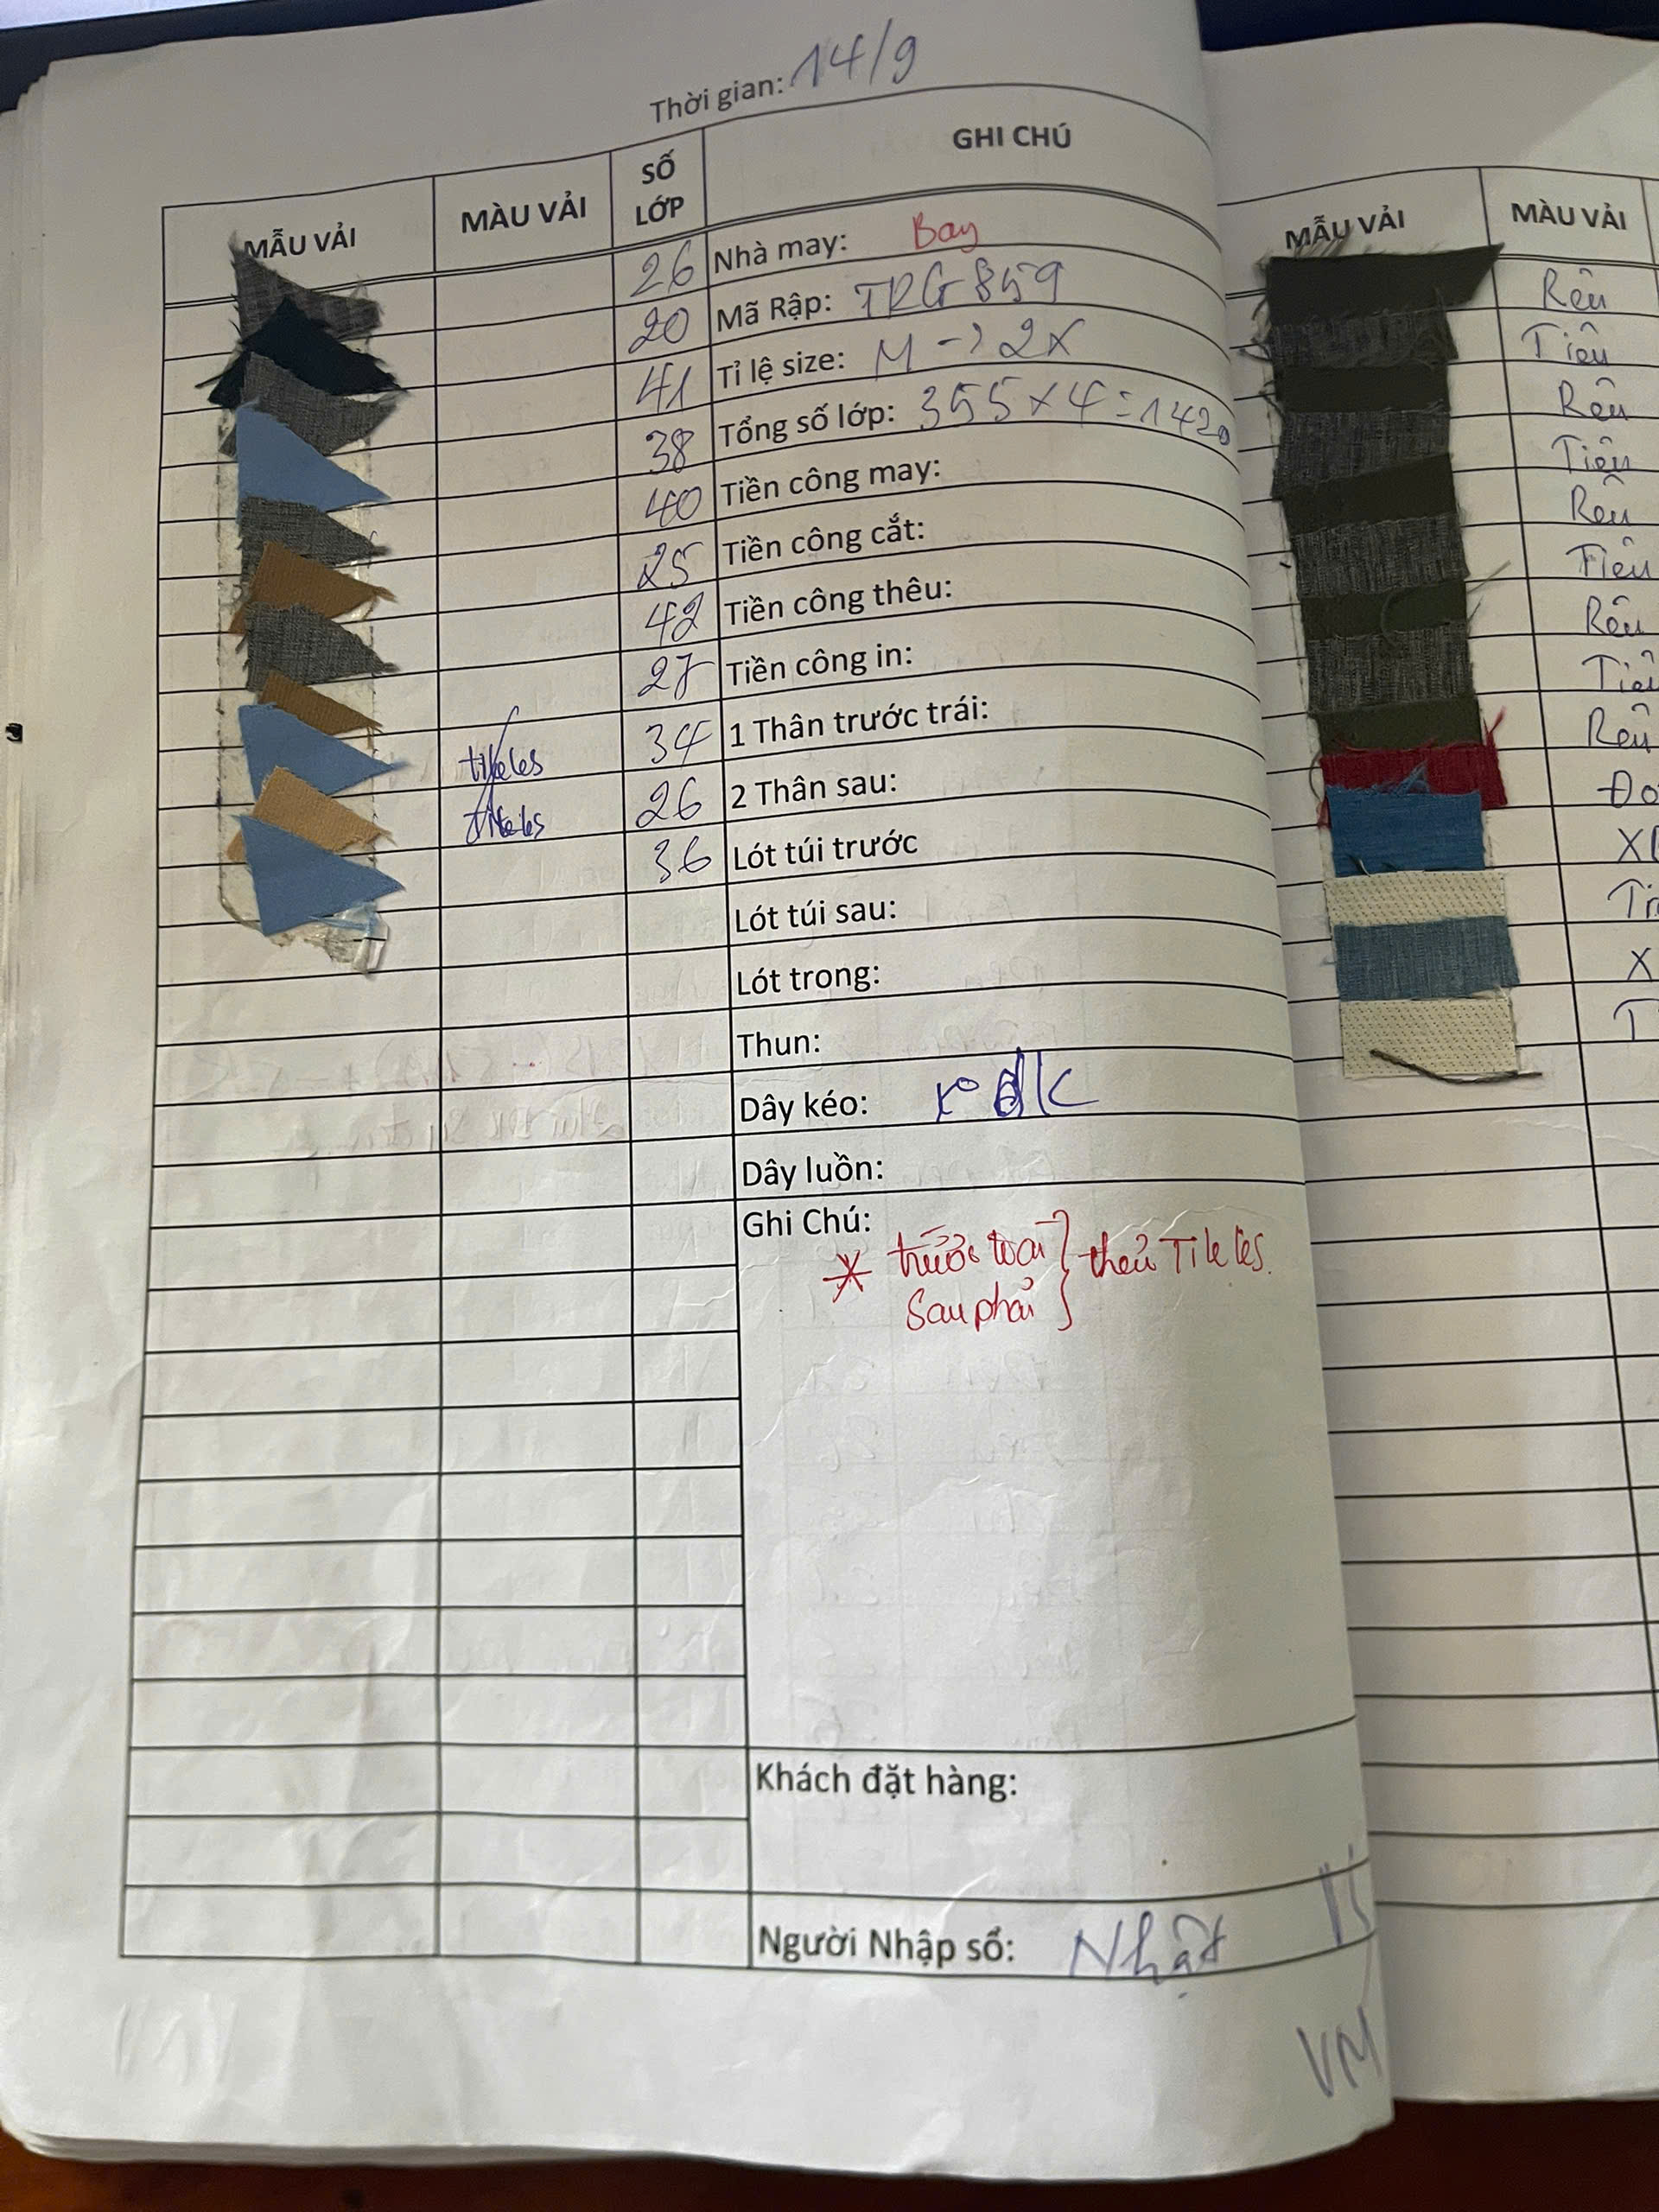 Thời gian: 14/9
MẪU VẢI MÀU VẢI SỐ LỚP GHI CHÚ
26 Nhà may: Bay
20 Mã Rập: TRG 859
41 Tỉ lệ size: M -> 2X
38 Tổng số lớp: 355 x 4 = 1420
40 Tiền công may:
25 Tiền công cắt:
42 Tiền công thêu:
27 Tiền công in:
34 1 Thân trước trái:
26 2 Thân sau:
36 Lót túi trước
Lót túi sau:
Lót trong:
Thun:
Dây kéo: ro dk
Dây luồn:
Ghi Chú:
* trước
Sau phải
Khách đặt hàng:
Người Nhập sổ: Nhật
VM
MẪU VẢI MÀU VẢI
Rêu
Tiêu
Rêu
Tiêu
Rêu
Tiêu
Rêu
Rêu